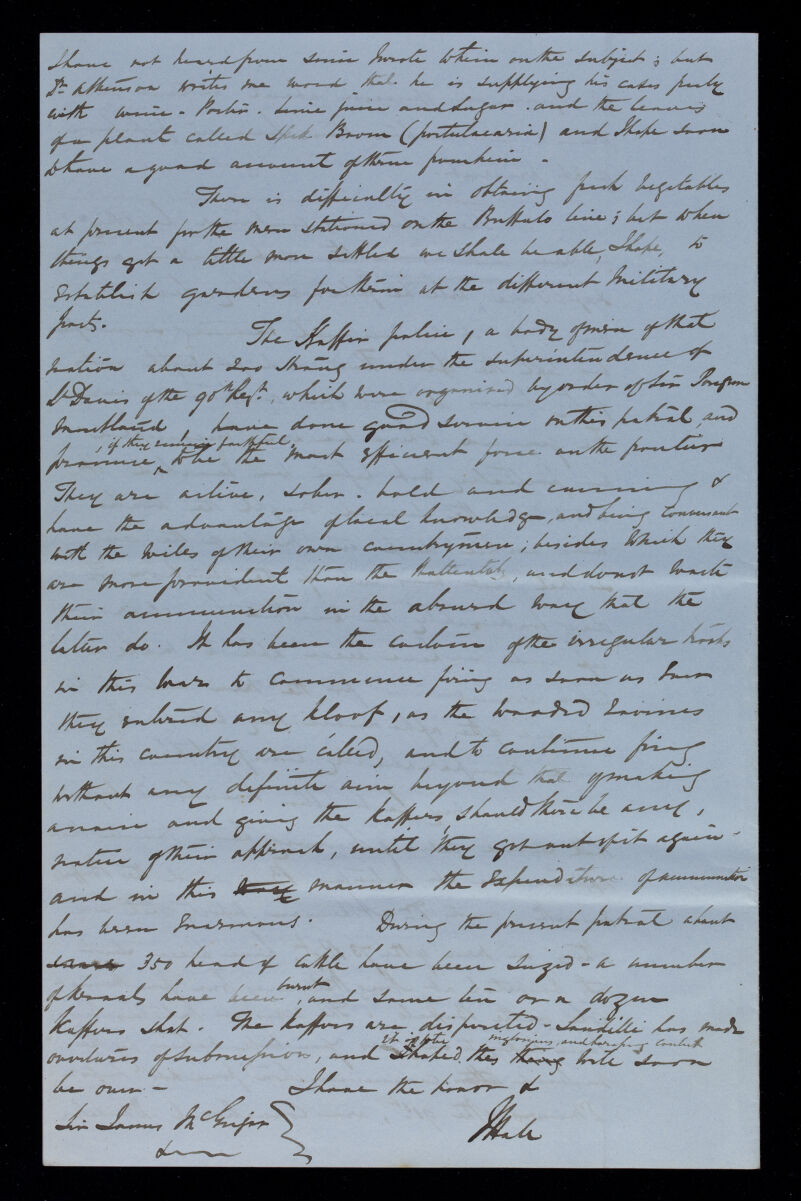 I have not heard from since I wrote to him on the subject; but
Dr. Atkinson writes me word that he is supplying his cases freely
with wine - Porter - lime juice and sugar - and the leaves
of a plant called Spek Boom (portulacaria) and I hope soon
to have a good account of them from him -
There is difficulty in obtaining fresh vegetables
at present for the men stationed on the Buffalo line; but when
things get a little more settled we shall be able, I hope, to
establish gardens for them at the different Military
posts.
The Kaffir police, a body of men of that
nation about 200 strong under the superintendence of
Lt Davis of the 90th Regt. which were organised by order of Sir Peregrine
Maitland, have done good service on this patrol, and
promise, if they continue faithful, to be the most efficient force on the frontier
They are active, sober, bold and cunning &
have the advantage of local knowledge, and being conversant
with the wiles of their own countrymen; besides which they
are more provident than the Hottentots, and do not waste
their ammunition in the absurd way that the
latter do. It has been the custom of the irregular troops
in this war to commence firing as soon as ever
they entered any kloof, as the wooded ravines
in this country are called, and to continue firing
without any definite aim beyond that of making
a noise and giving the Kaffers, should there be any,
notice of their approach, until they got out of it again -
and in this manner the expenditure of ammunition
has been enormous. During the present patrol about
350 head of cattle have been seized - a number
of kraals have been burnt, and some ten or a dozen
Kaffers shot. The Kaffers are dispirited - Sandilli has made
overtures of submission, and it is to be hoped this inglorious, and harassing contest will soon
be over - I have the honor &
Sir James McGrigor
J Hall